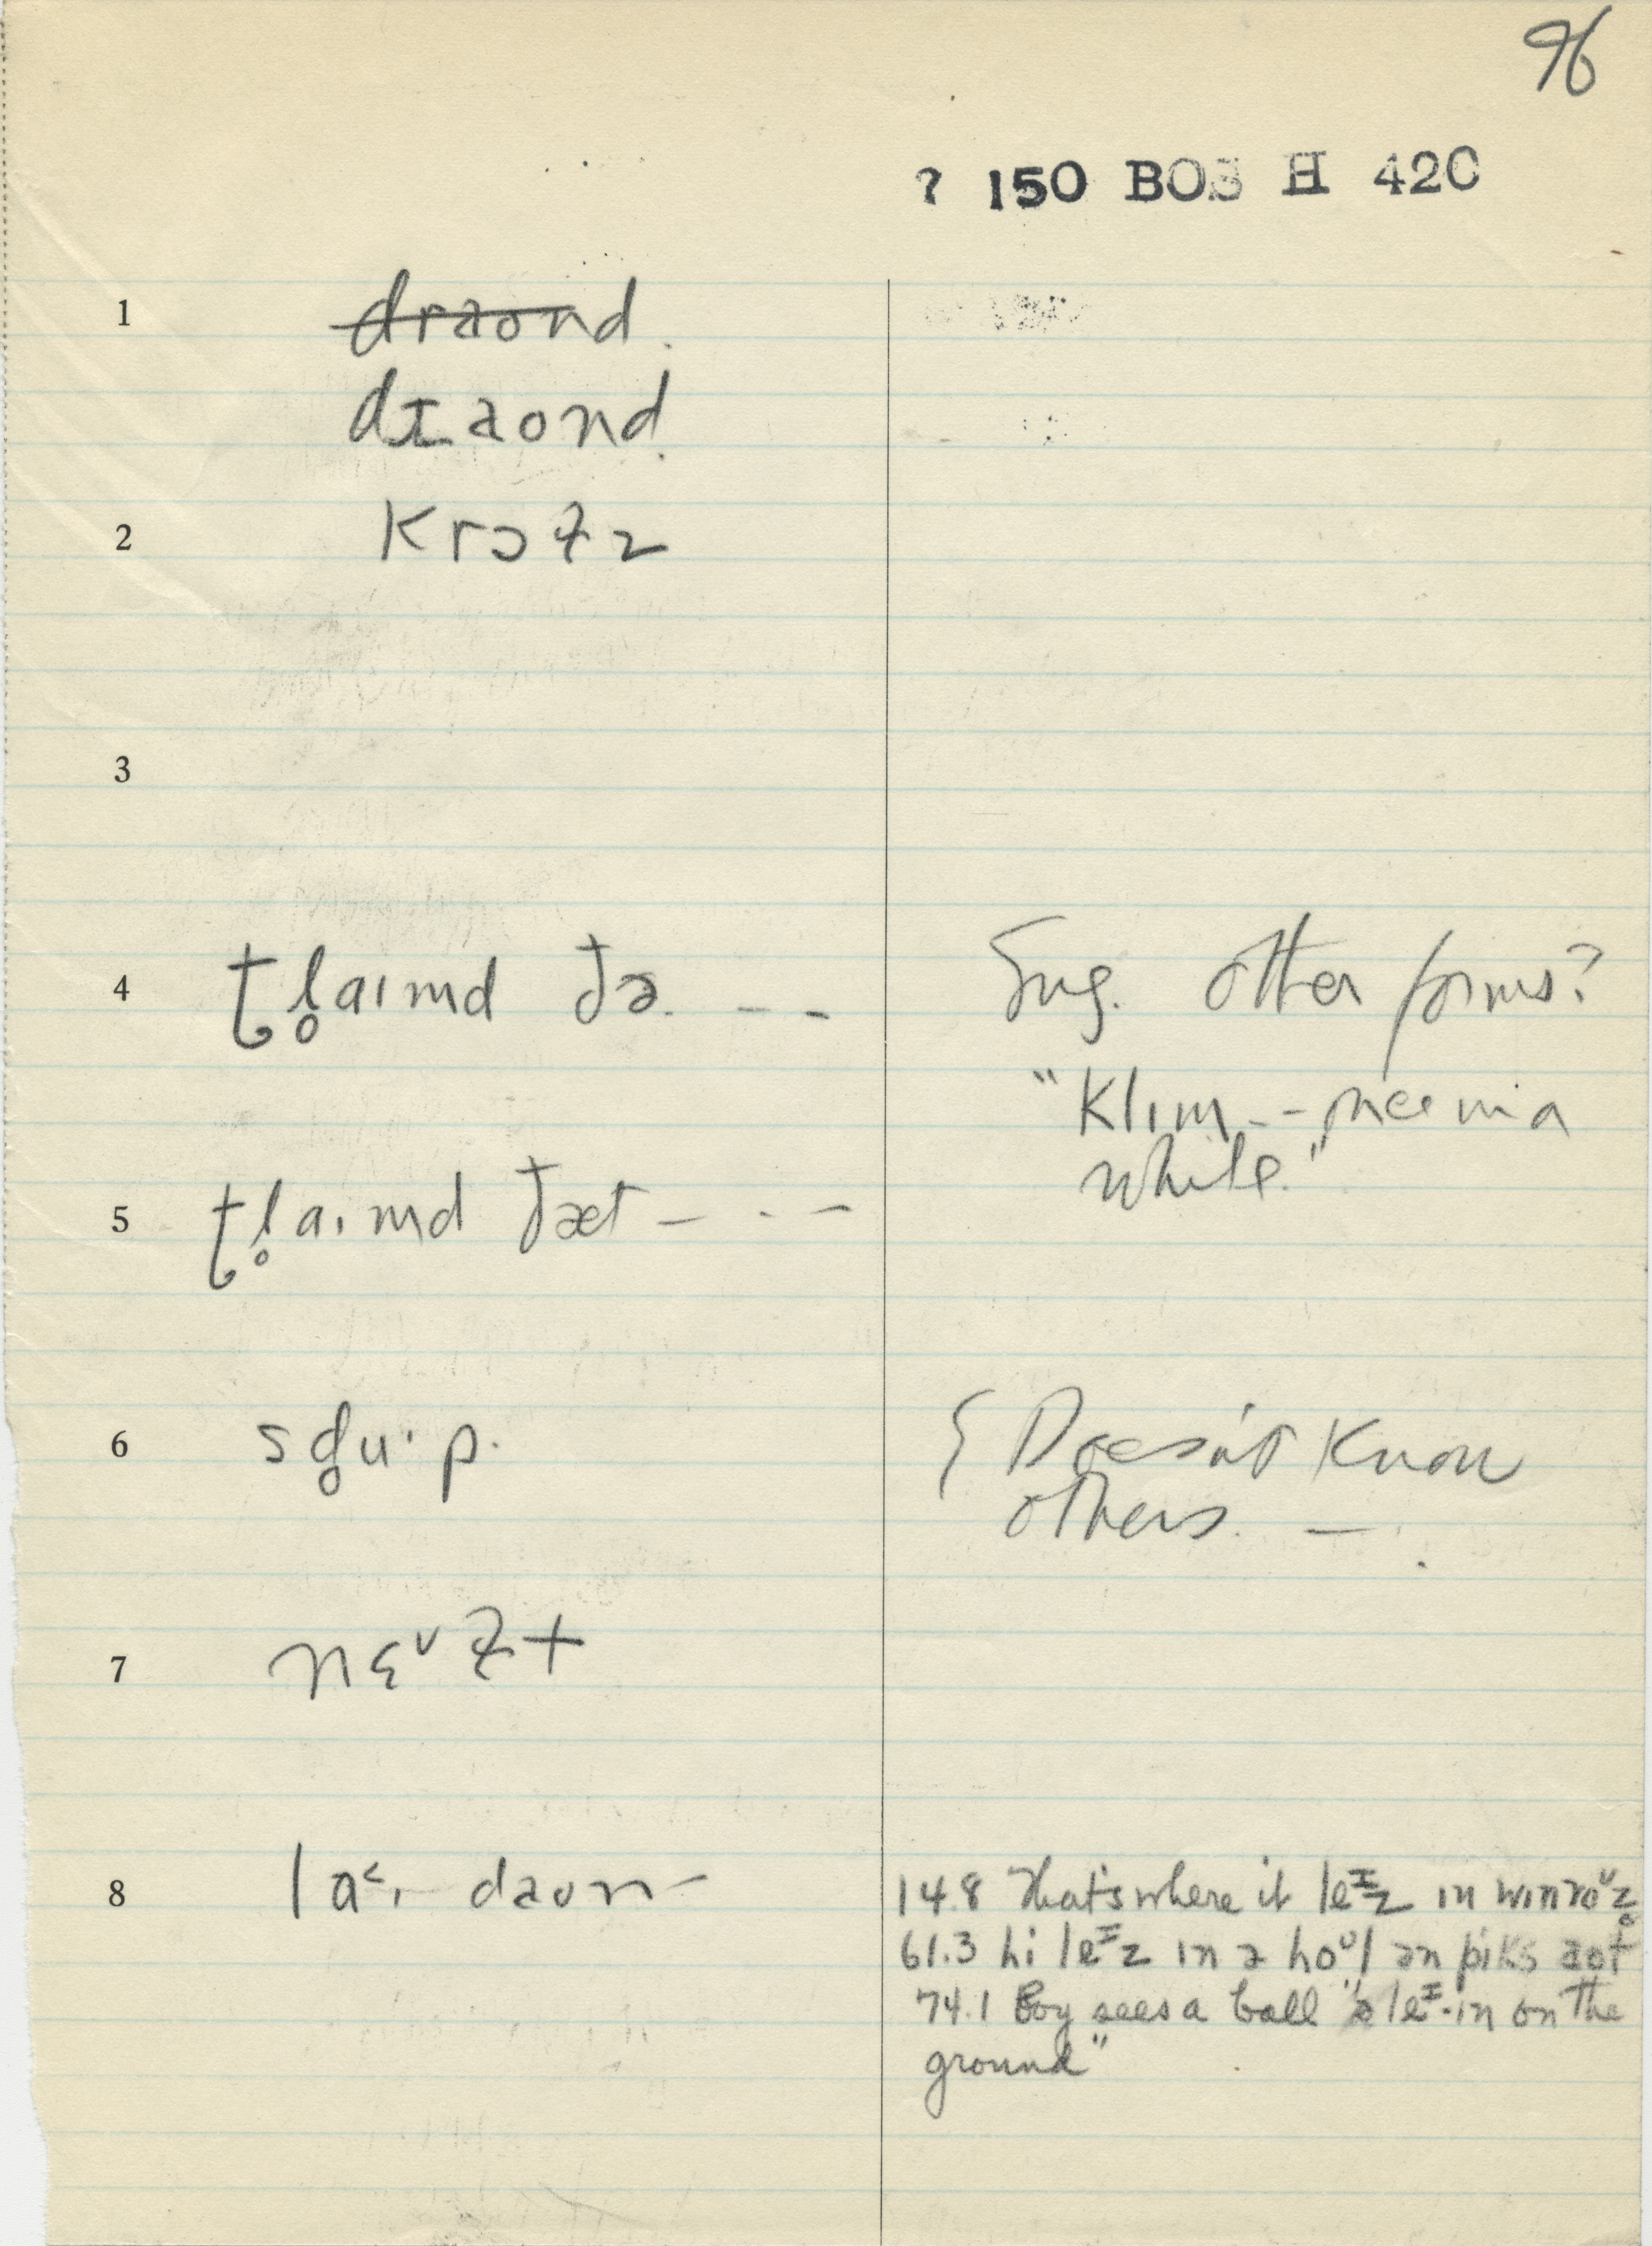 96
? 150 BOS H 42C
1 draond.
draond.
2 krɔłz
3
4 ƫl̥aɪmd ðə. - -
Sug. other forms?
"Klɪm - - once in a
while."
5 ƫl̥aɪmd ðæt - - -
6 sg̊uˑp.
{ Doesn't know
others. -
7 nɛᵛłt
8 la˂ɪ daʊn -
14.8 That's where it leᶦz in wɪnroᶷz̥
61.3 hi leᶦz in ə hoᶷl ən pɪks aot
74.1 Boy sees a ball "ə leᶦ·in on the
ground"